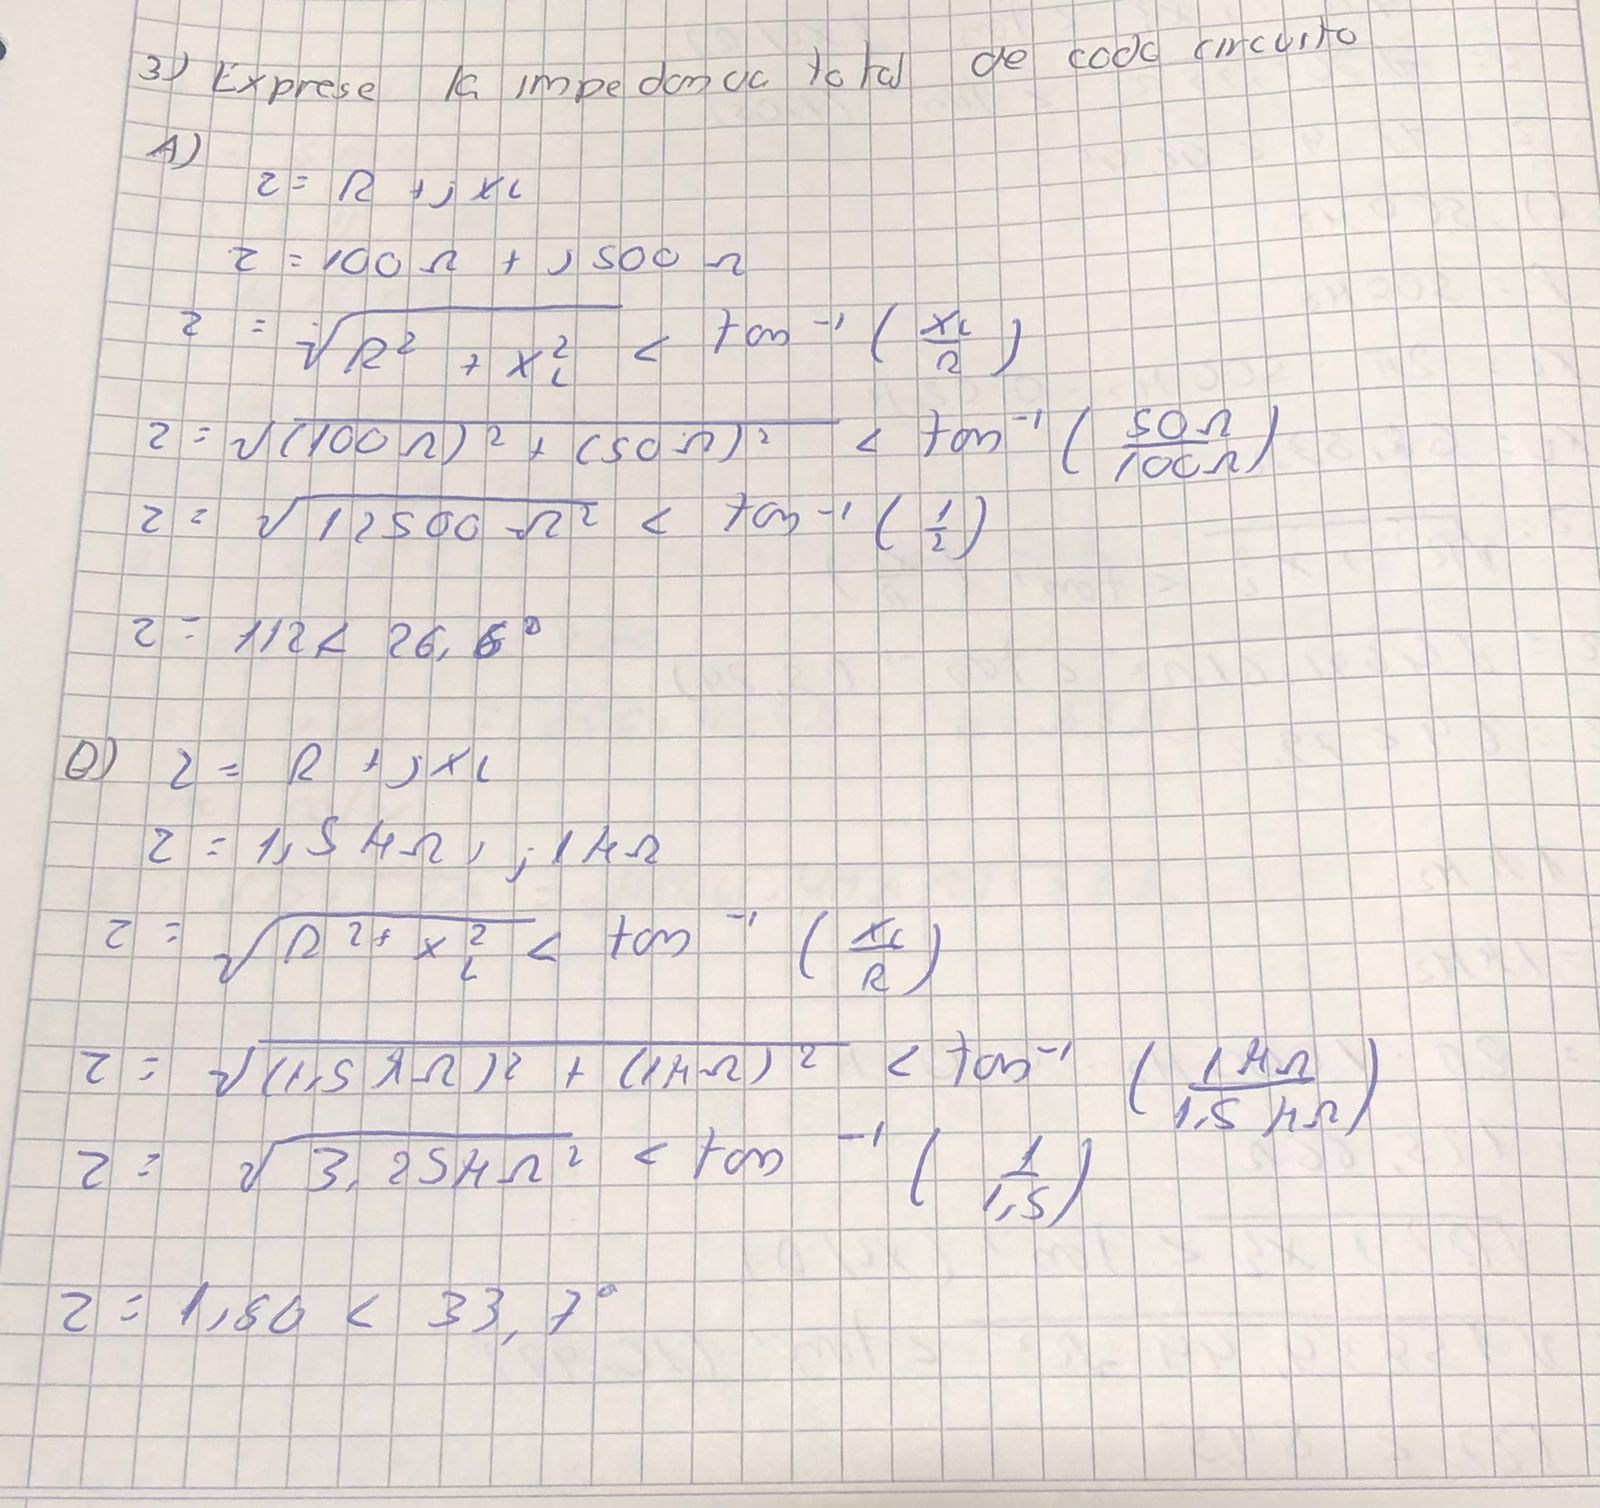 3) Exprese la impedancia total de cada circuito
A)
Z = R + jXL
Z = 100 Ω + j 500 Ω
Z = √R² + XL² < tan⁻¹ (XL/R)
Z = √(100 Ω)² + (50 Ω)² < tan⁻¹ (50Ω/100Ω)
Z = √12500 Ω² < tan⁻¹ (1/2)
Z = 112 < 26,6°
B) Z = R + jXL
Z = 1,5 KΩ, j 1 KΩ
Z = √R² + XL² < tan⁻¹ (XL/R)
Z = √(1,5 KΩ)² + (1KΩ)² < tan⁻¹ (1 KΩ/1,5 KΩ)
Z = √3,25 KΩ² < tan⁻¹ (1/1,5)
Z = 1,80 < 33,7°